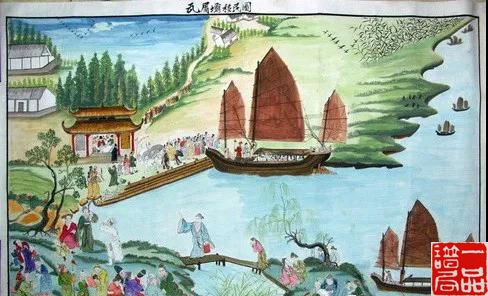 瓦屑壩移民圖
一品
譜局